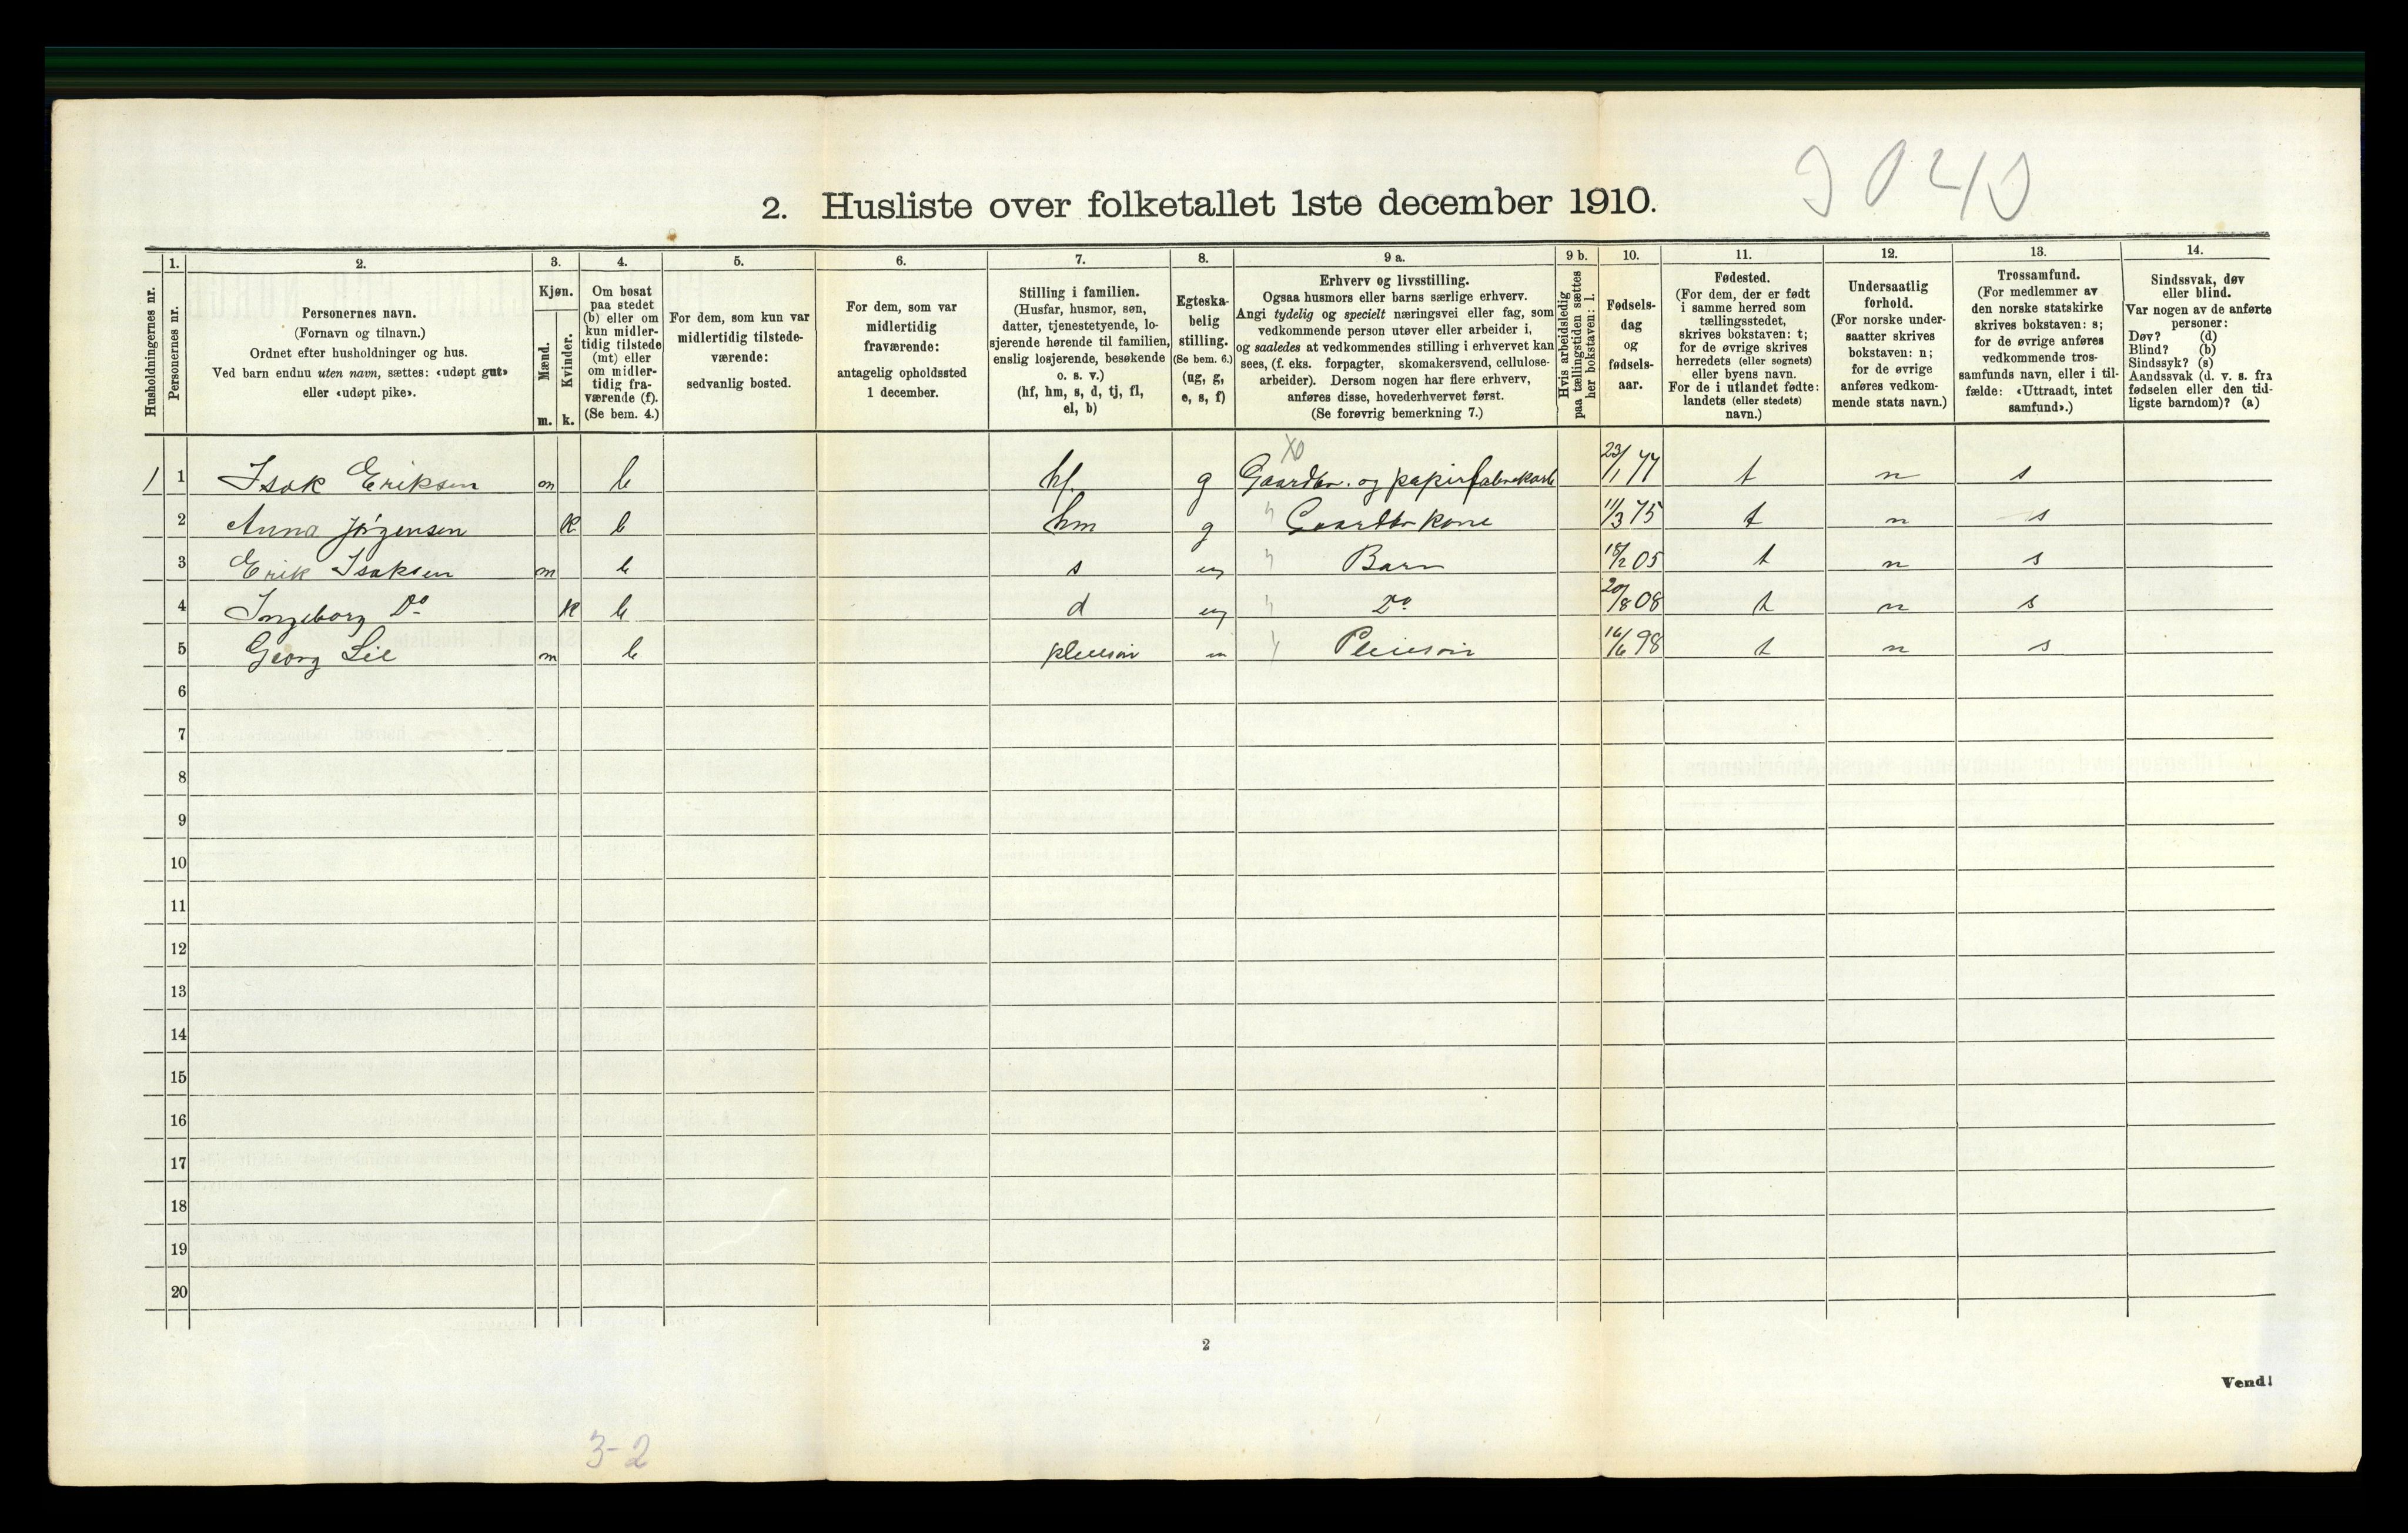 2. Husliste over folketallet 1ste december 1910.
Husholdningernes nr.
1. Personernes nr.
2. Personernes navn.
(Fornavn og tilnavn.)
Ordnet efter husholdninger og hus.
Ved barn endnu uten navn, sættes: «udøpt gut»
eller «udøpt pike».
3. Kjøn.
Mænd. m.
Kvinder. k.
4. Om bosat
paa stedet
(b) eller om
kun midler-
tidig tilstede
(mt) eller
om midler-
tidig fra-
værende (f).
(Se bem. 4.)
5. For dem, som kun var
midlertidig tilstede-
værende:
sedvanlig bosted.
6. For dem, som var
midlertidig
fraværende:
antagelig opholdssted
1 december.
7. Stilling i familien.
(Husfar, husmor, søn,
datter, tjenestetyende, lo-
sjerende hørende til familien,
enslig losjerende, besøkende
o. s. v.)
(hf, hm, s, d, tj, fl,
el, b)
8. Egteska-
belig
stilling.
(Se bem. 6.)
(ug, g,
e, s, f)
9 a. Erhverv og livsstilling.
Ogsaa husmors eller barns særlige erhverv.
Angi tydelig og specielt næringsvei eller fag, som
vedkommende person utøver eller arbeider i,
og saaledes at vedkommendes stilling i erhvervet kan
sees, (f. eks. forpagter, skomakersvend, cellulose-
arbeider). Dersom nogen har flere erhverv,
anføres disse, hovederhvervet først.
(Se forøvrig bemerkning 7.)
9 b. Hvis arbeidsledig
paa tællingstiden sættes
her bokstaven: l.
10. Fødsels-
dag
og
fødsels-
aar.
11. Fødested.
(For dem, der er født
i samme herred som
tællingsstedet,
skrives bokstaven: t;
for de øvrige skrives
herredets (eller sognets)
eller byens navn.
For de i utlandet fødte:
landets (eller stedets)
navn.)
12. Undersaatlig
forhold.
(For norske under-
saatter skrives
bokstaven: n;
for de øvrige
anføres vedkom-
mende stats navn.)
13. Trossamfund.
(For medlemmer av
den norske statskirke
skrives bokstaven: s;
for de øvrige anføres
vedkommende tros-
samfunds navn, eller i til-
fælde: «Uttraadt, intet
samfund».)
14. Sindssvak, døv
eller blind.
Var nogen av de anførte
personer:
Døv? (d)
Blind? (b)
Sindssyk? (s)
Aandssvak (d. v. s. fra
fødselen eller den tid-
ligste barndom)? (a)
X0
1 1 Isak Eriksen m b hf g Gaardbr. og papirfabrikarb 23/1 77 t n s
2 Anna Jørgensen k b hm g Gaardbr kone 11/3 75 t n s
3 Erik Isaksen m b s ug Barn 18/2 05 t n s
4 Ingeborg Do k b d ug Do 20/8 08 t n s
5 Georg Lie m b pleiesøn Pleiesøn 16/6 98 t n s
6
7
8
9
10
11
12
13
14
15
16
17
18
19
20
2
Vend!
3-2